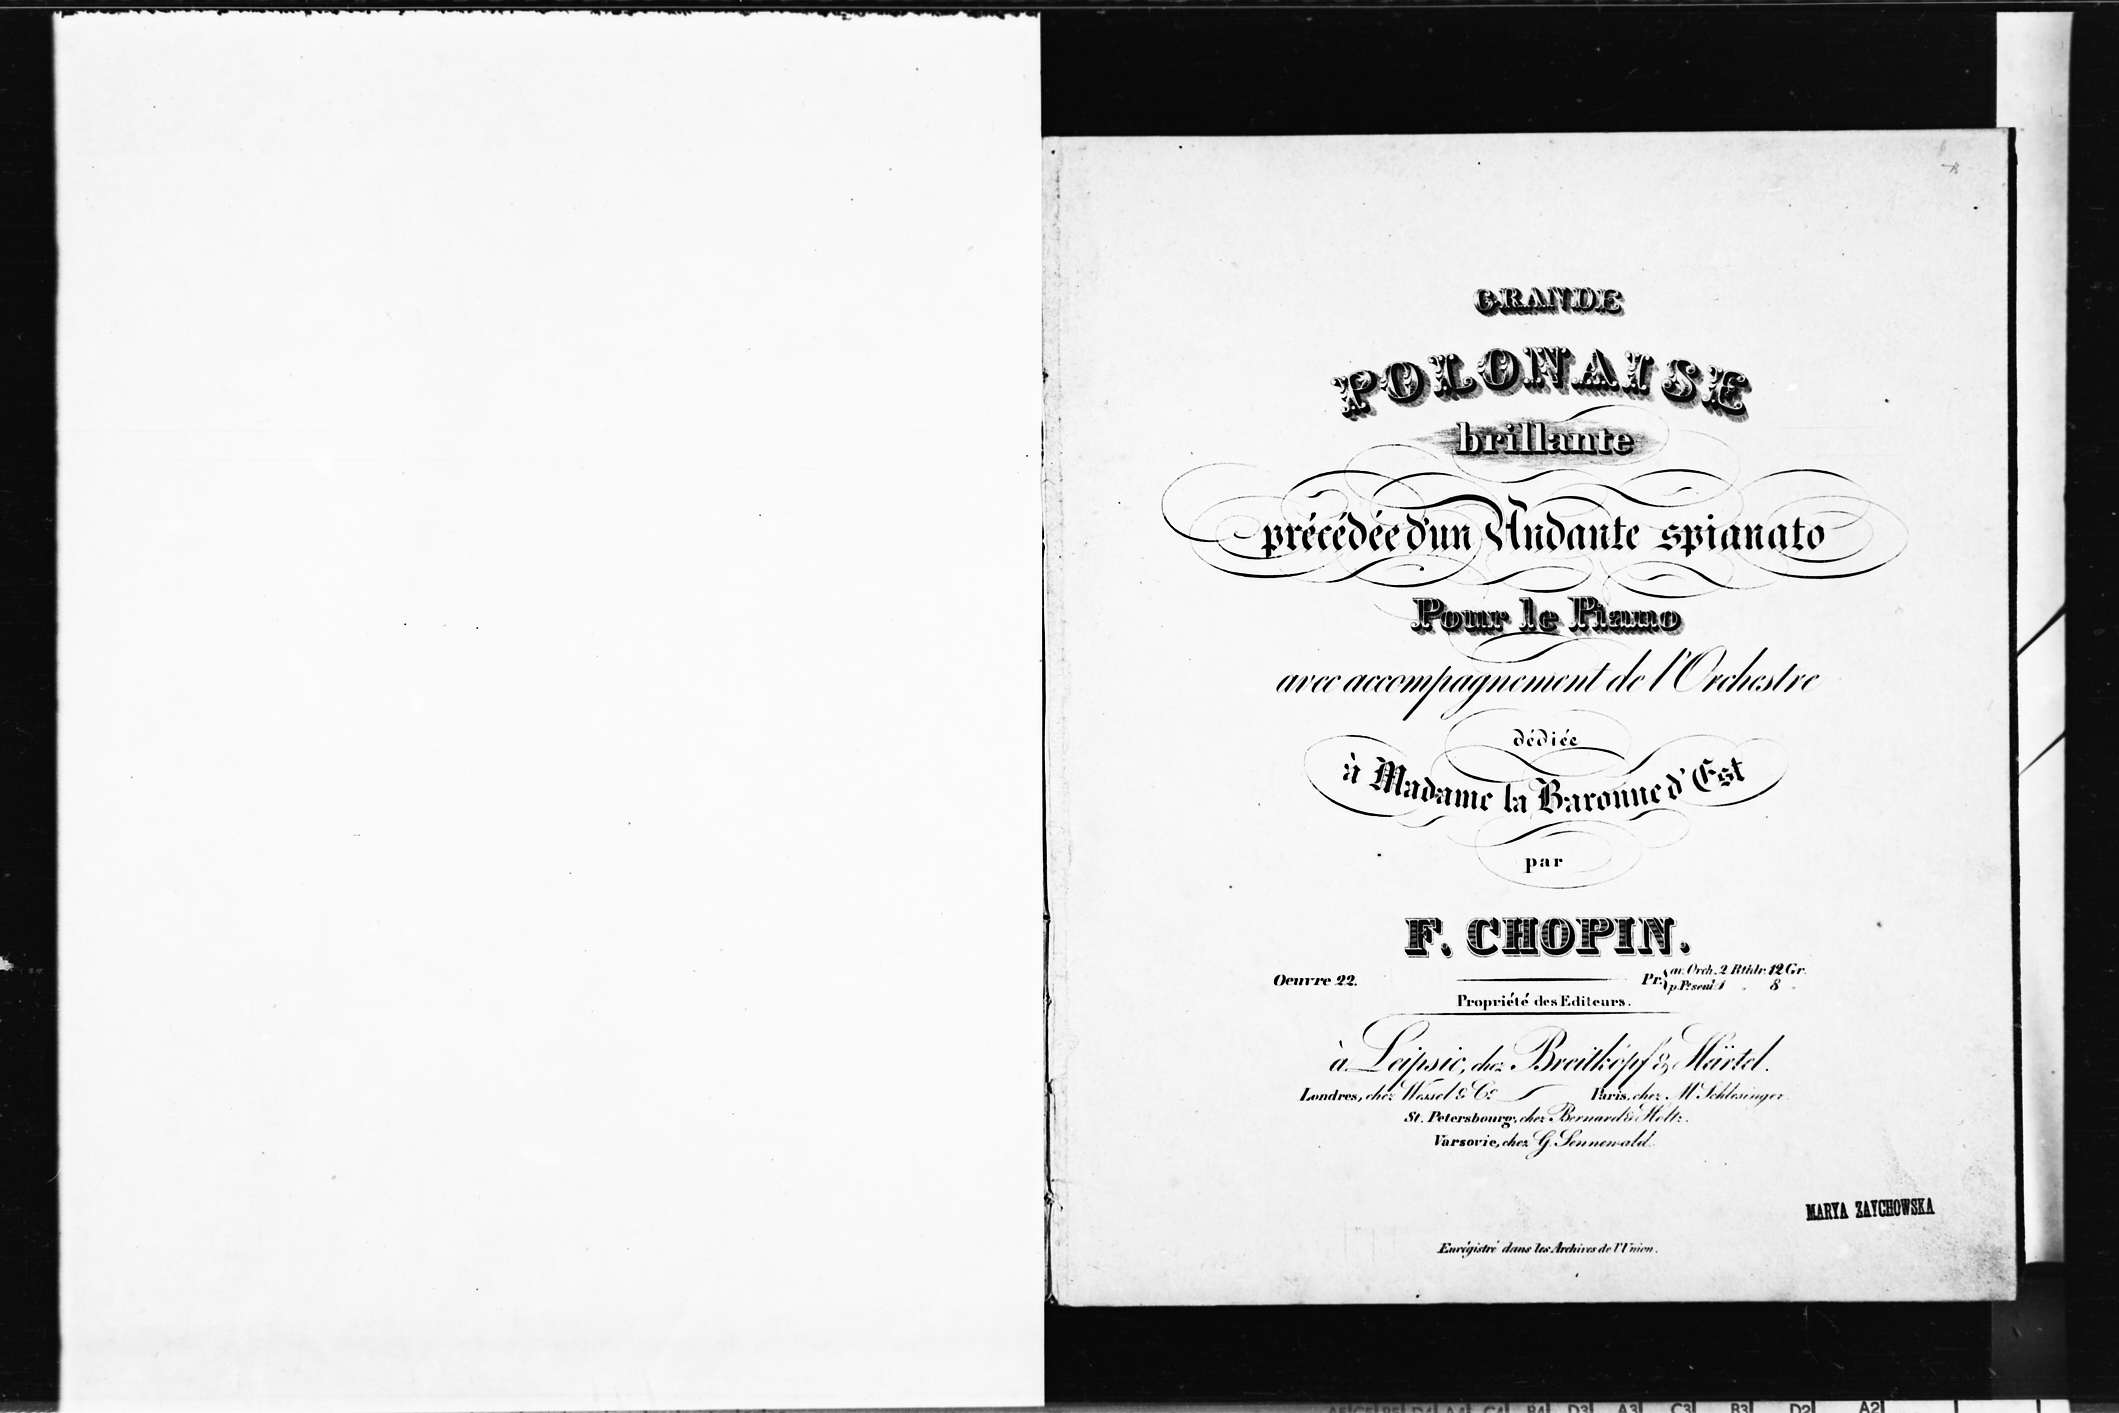 GRANDE
POLONAISE
brillante
précédée d'un Andante spianato
Pour le Piano
avec accompagnement de l'Orchestre
dédiée
à Madame la Baronne d'Est
par
F. CHOPIN.
Oeuvre 22.
Pr. av. Orch. 2 Rthlr. 12 Gr.
p. Pf. seul. 1 " 8 "
Propriété des Editeurs.
à Leipsic, chez Breitkopf & Härtel.
Londres, chez Wessel & Co. Paris, chez M. Schlesinger.
St. Petersbourg, chez Bernard & Holtz.
Varsovie, chez G. Sennewald.
MARYA ZAYCHOWSKA
Enrégistré dans les Archives de l'Union.
C4 B4 D3 A3 C3 B3 D2 A2